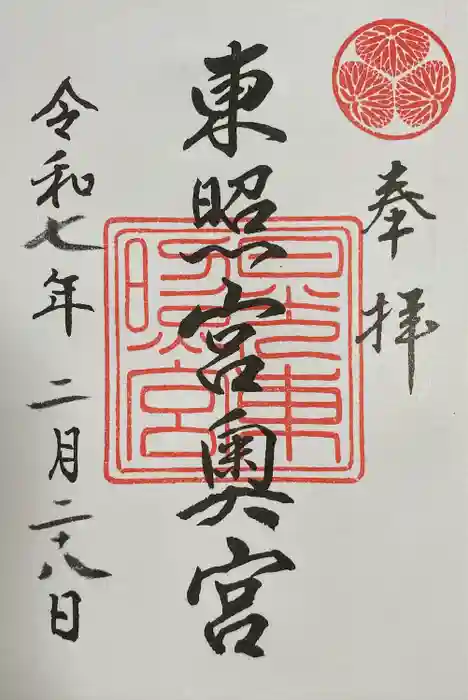 奉拝
東照宮奥宮
日光東
照宮
令和七年二月二十八日